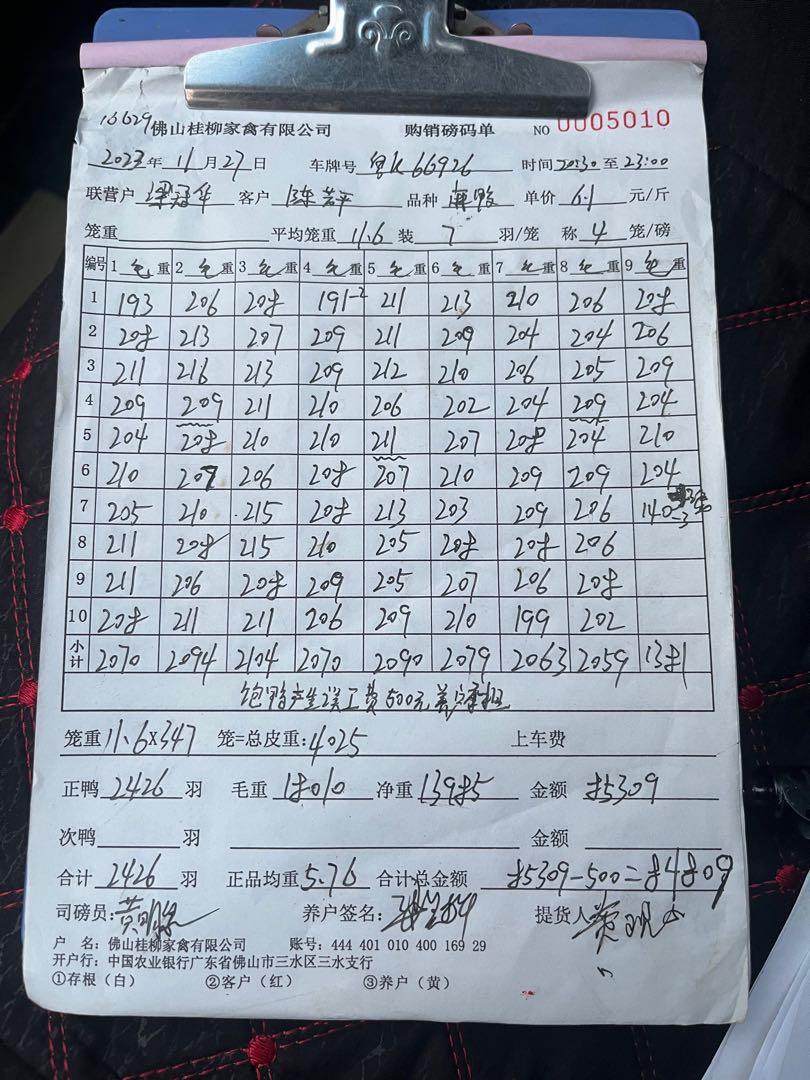 16629 佛山桂柳家禽有限公司 购销磅码单 NO 0005010
2023年11月27日 车牌号 粤K66926 时间20:30至23:00
联营户 梁冠华 客户 陈芳平 品种 麻鸭 单价 6.1 元/斤
笼重 平均笼重 11.6 装 7 羽/笼 称 4 笼/磅
编号 1 毛重 2 毛重 3 毛重 4 毛重 5 毛重 6 毛重 7 毛重 8 毛重 9 毛重
1 193 206 208 191-2 211 213 210 206 208
2 208 213 207 209 211 209 204 204 206
3 211 216 213 209 212 210 206 205 209
4 209 209 211 210 206 202 204 209 204
5 204 208 210 210 211 207 208 204 210
6 210 207 206 208 207 210 209 209 204
7 205 210 215 208 213 203 209 206 140-3
8 211 208 215 210 205 208 208 206
9 211 206 208 209 205 207 206 208
10 208 211 211 206 209 210 199 202
小计 2070 2094 2104 2070 2090 2079 2063 2059 1381
饱鸭产生误工费500元养户承担
笼重 11.6×347 笼=总皮重:4025 上车费
正鸭 2426 羽 毛重 18010 净重 13985 金额 85309
次鸭 羽 金额
合计 2426 羽 正品均重 5.76 合计总金额 85309-500=84809
司磅员: 养户签名: 提货人
户 名: 佛山桂柳家禽有限公司 账号: 444 401 010 400 169 29
开户行: 中国农业银行广东省佛山市三水区三水支行
①存根(白) ②客户(红) ③养户(黄)